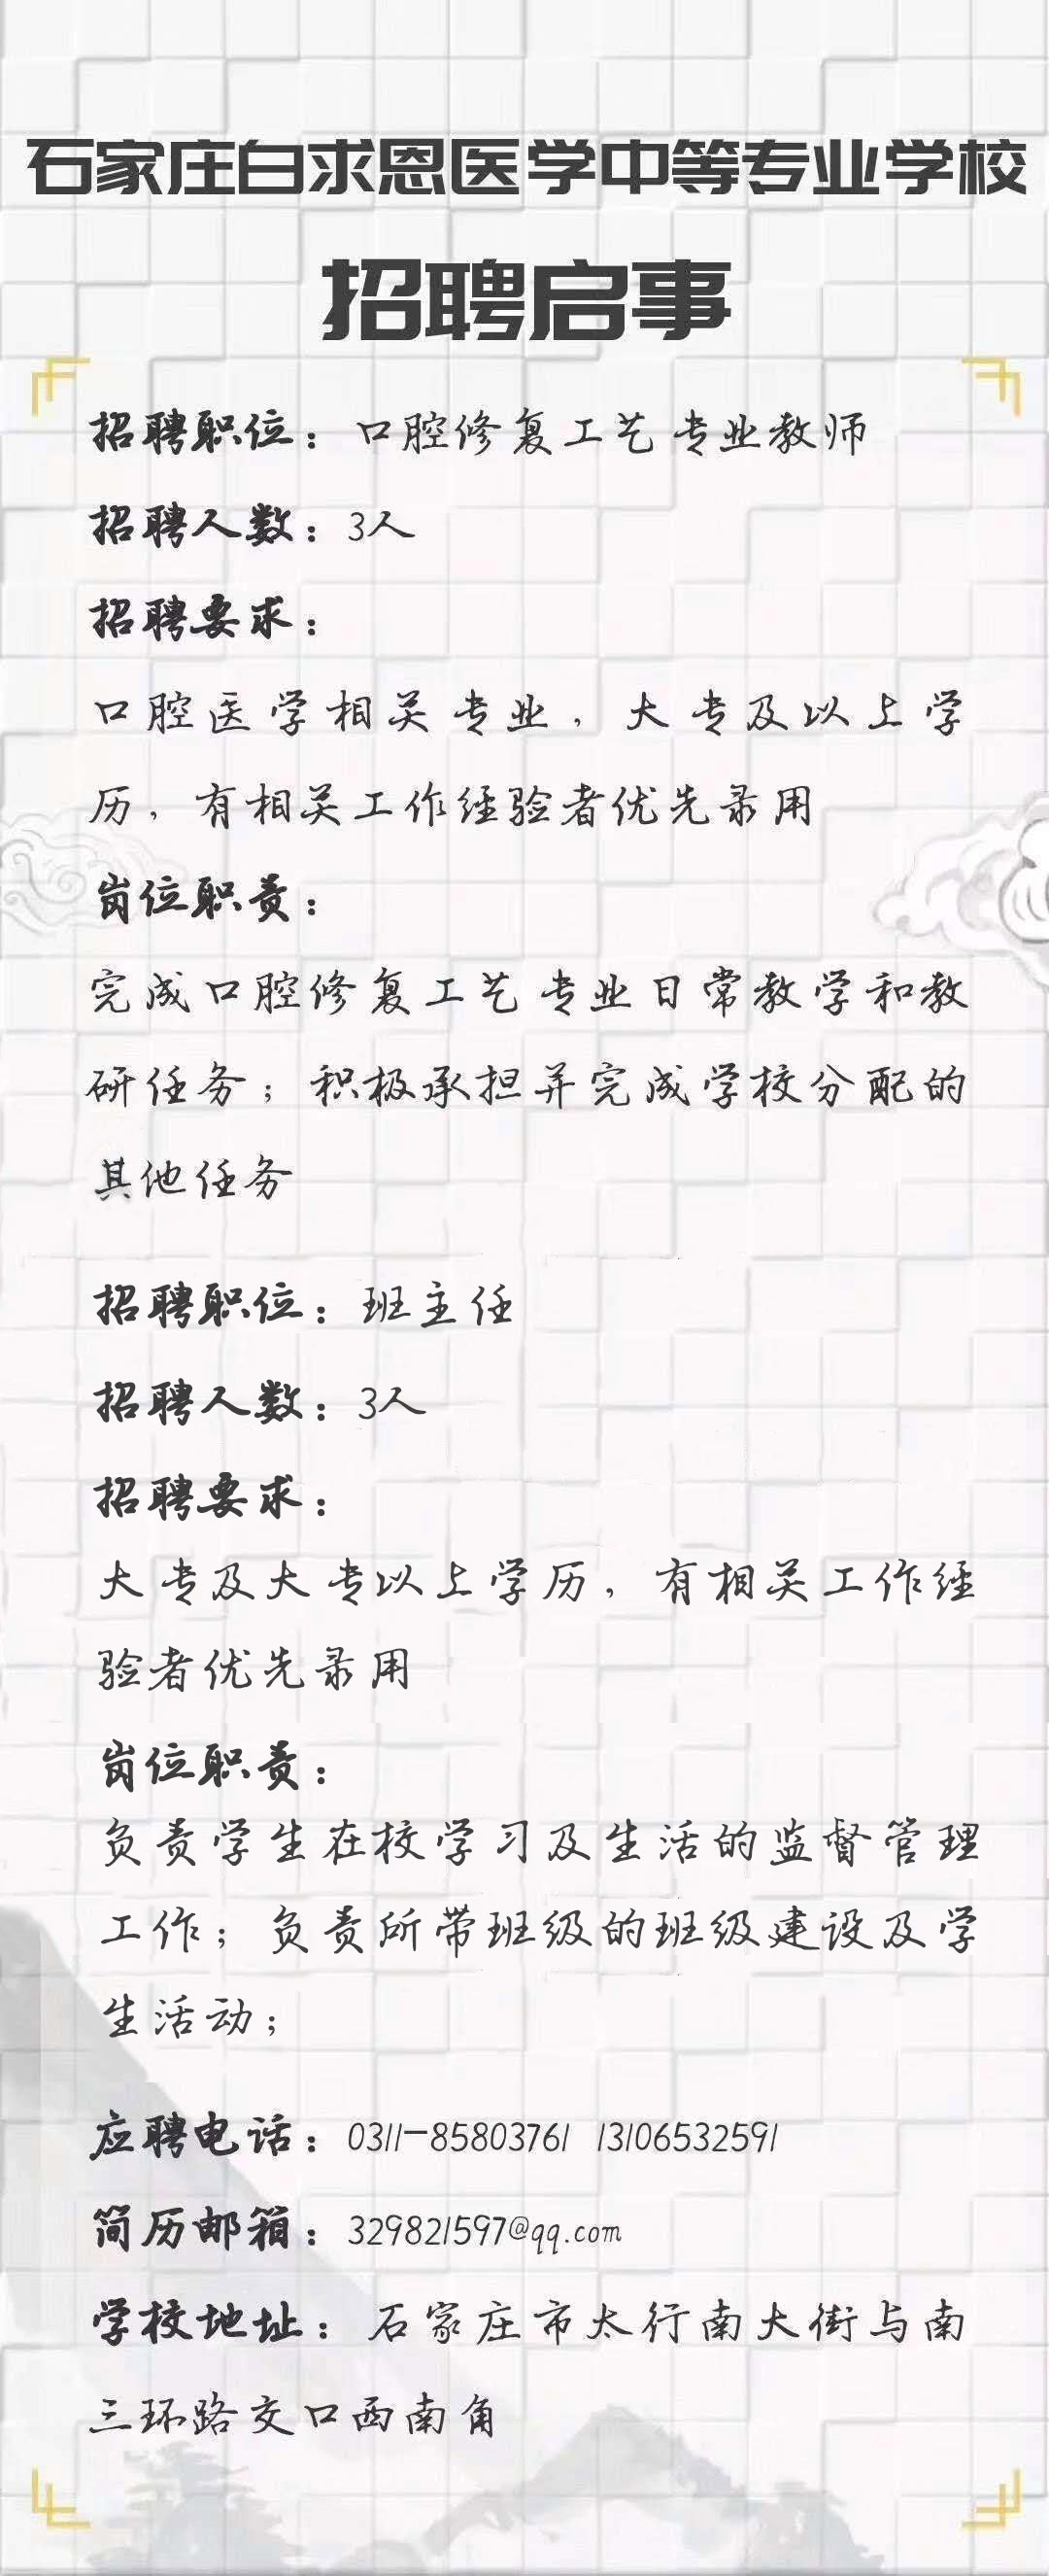 石家庄白求恩医学中等专业学校
招聘启事
招聘职位：口腔修复工艺专业教师
招聘人数：3人
招聘要求：
口腔医学相关专业，大专及以上学
历，有相关工作经验者优先录用
岗位职责：
完成口腔修复工艺专业日常教学和教
研任务；积极承担并完成学校分配的
其他任务
招聘职位：班主任
招聘人数：3人
招聘要求：
大专及大专以上学历，有相关工作经
验者优先录用
岗位职责：
负责学生在校学习及生活的监督管理
工作；负责所带班级的班级建设及学
生活动；
应聘电话：0311-85803761 13106532591
简历邮箱：329821597@qq.com
学校地址：石家庄市太行南大街与南
三环路交口西南角